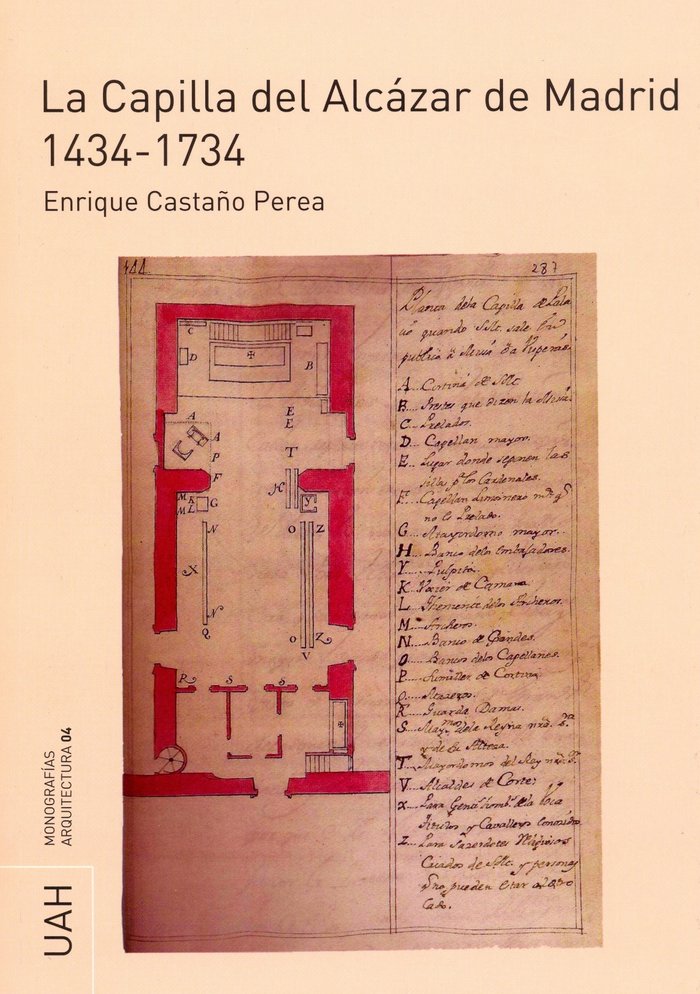 La Capilla del Alcázar de Madrid
1434-1734
Enrique Castaño Perea
144.
287
Planta dela Capilla de Pala
cio quando S.M. sale en
publico a Missa o a Visperas.
A. Cortina de S.M.
B. Prestes que dizen la Missa.
C. Prelados.
D. Capellan mayor.
E. Lugar donde se ponen las
silla p.ª los Cardenales.
F. Capellan Limosnero m.or q.
no es Prelado.
G. Mayordomo mayor.
H. Banco delos Embaxadores.
Y. Pulpito.
K. Uxier de Camara
L. Theniente delos Archeros.
M. Archeros.
N. Banco de Grandes.
O. Bancos delos Capellanes.
P. Sumiller de Cortina
Q. Maceros.
R. Guarda Damas.
S. dela Reyna
y de su Alteza.
T. Mayordomos del Rey
V. Alcaldes de Corte.
X. Para dela boca
y Cavalleros conocidos
Z. Para Sazerdotes Religiosos
Criados de S.M. y personas
q. no pueden estar al otro
lado.
C
D
B
A
E
E
A
P
T
F
H
M
K
G
Y
M
L
N
O
Z
X
N
Q
O
Z
V
R
S
S
MONOGRAFÍAS
ARQUITECTURA 04
UAH